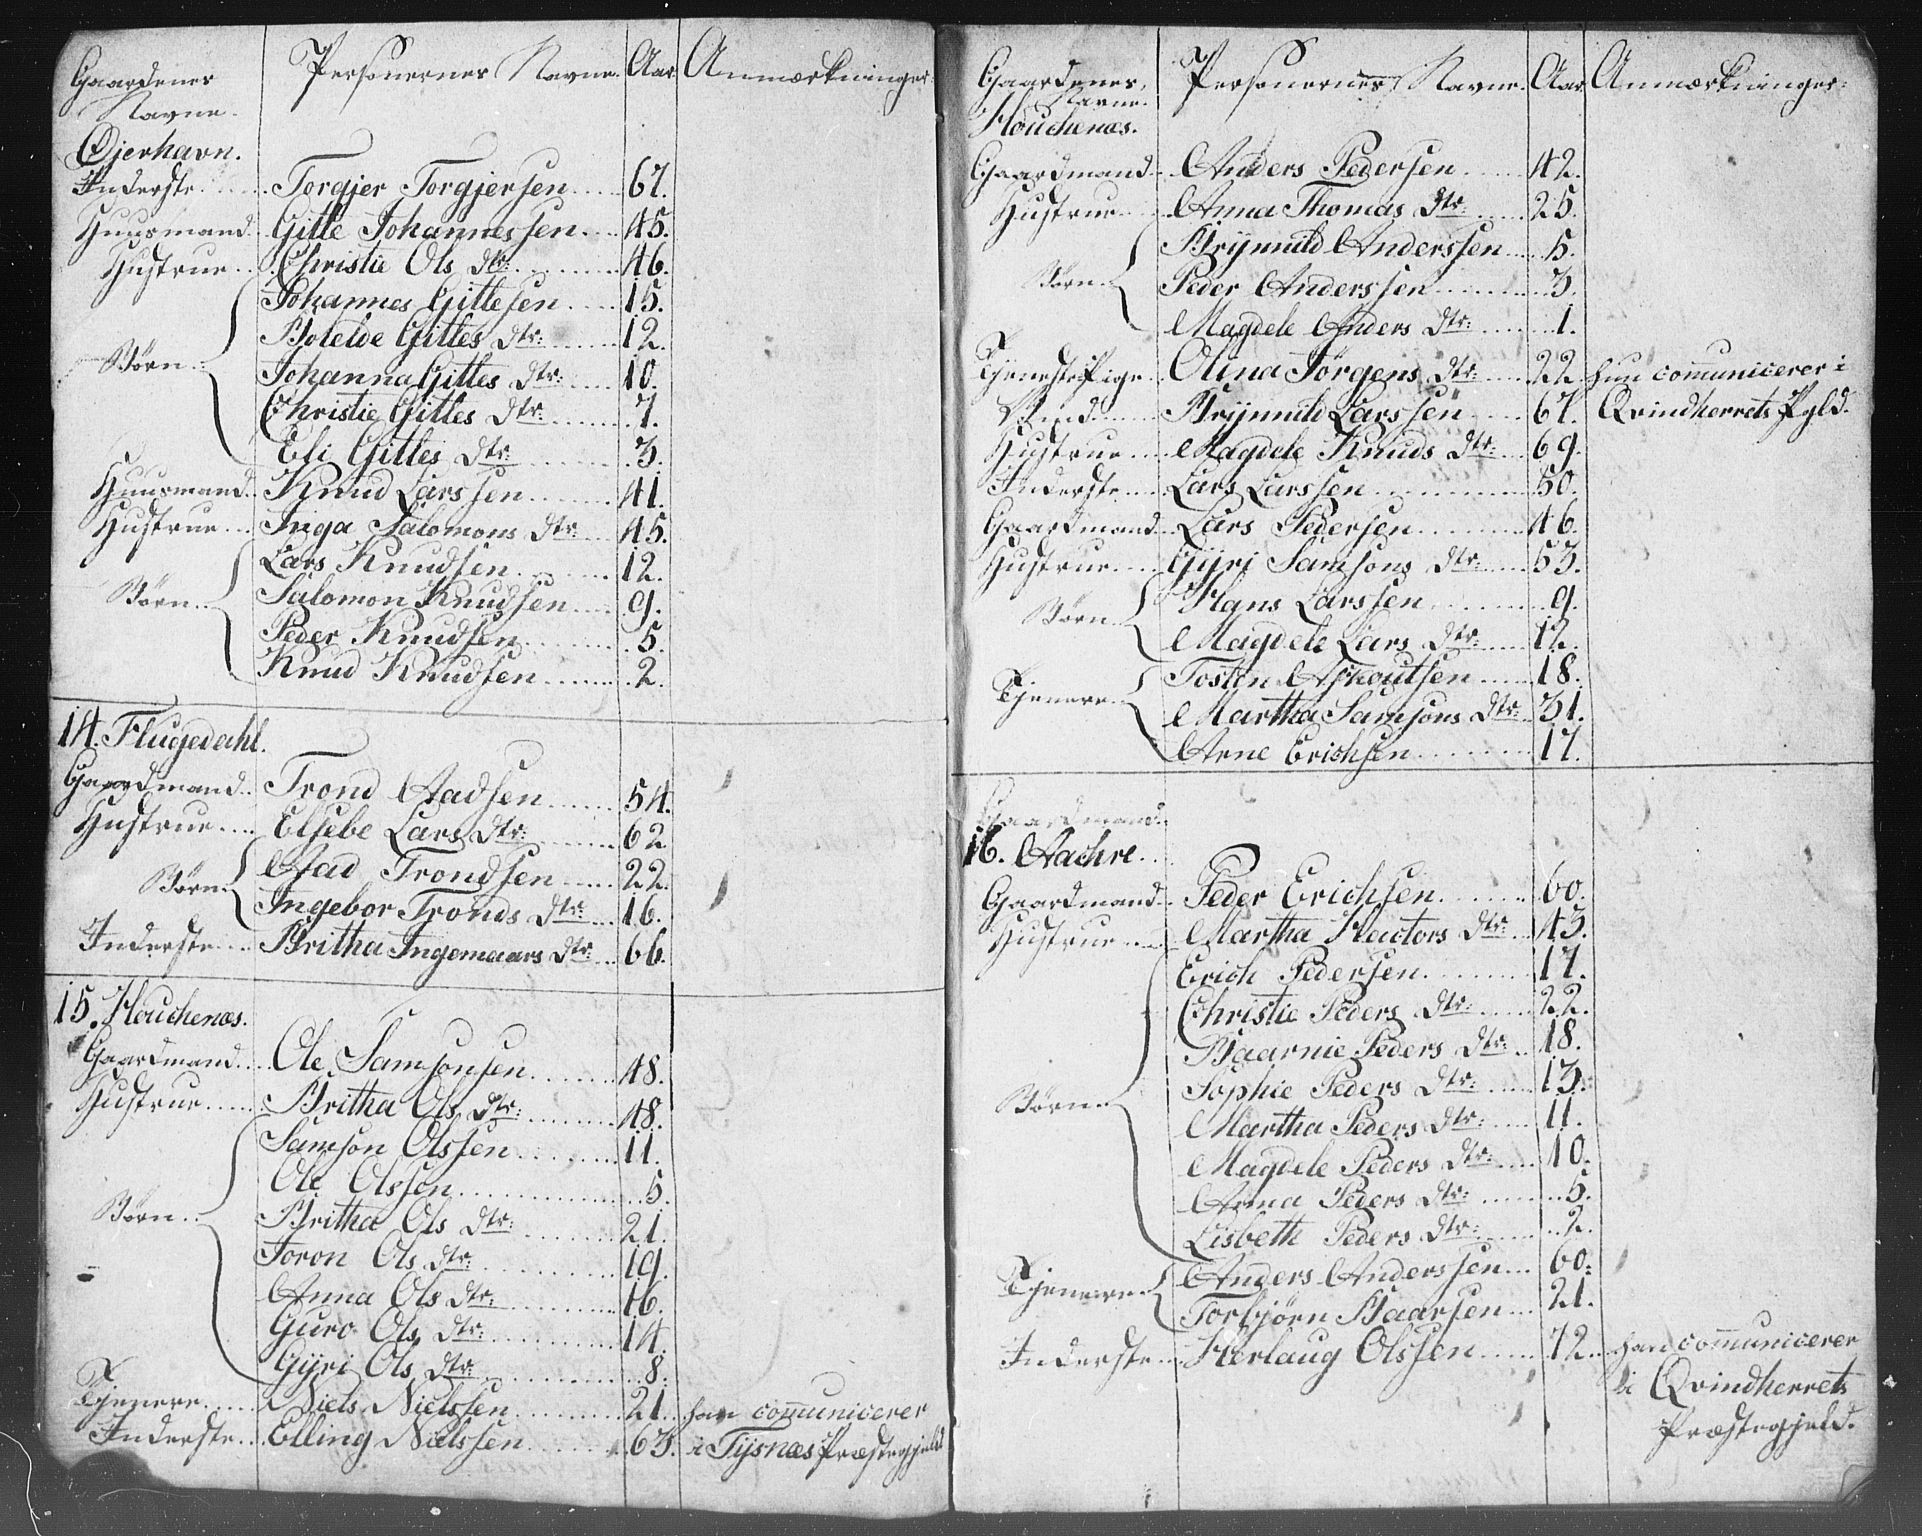 Gaardenes Personernes Navne. Aar Anmærkninger.
Navne.
Øjerhavn.
Inderste Torgjer Torgjersen 67.
Huusmand Gitle Johannessen 45.
Hustrue Christie Ols Dtr: 46.
Johannes Gitlesen 15.
Botelde Gitles Dtr: 12.
Børn Johanna Gitles Dtr: 10.
Christie Gitles Dtr: 7.
Eli Gitles Dtr: 3.
Huusmand Knud Larssen 41.
Hustrue Inga Salomons Dtr: 45.
Lars Knudsen 12.
Børn Salomon Knudsen 9.
Peder Knudsen 5.
Knud Knudsen 2.
14. Flugedahl.
Gaardmand Trond Aadsen 54.
Hustrue Elsebe Lars Dtr: 62
Børn Aad Trondsen 22.
Ingebor Tronds Dtr: 16.
Inderste Britha Ingemaars Dtr: 66.
15. Houchenæs.
Gaardmand Ole Samsonsen 48.
Hustrue Britha Ols Dtr: 48.
Samson Olssen 11.
Ole Olsson 5.
Børn Britha Ols Dtr: 21.
Toron Ols Dtr: 19.
Anna Ols Dtr: 16.
Guro Ols Dtr: 14.
Gyri Ols Dtr: 8.
Tjenere Niels Nielssen 21. han communicerer
Inderste Elling Nielssen 63. i Tysnæs Præstegjeld
Gaardenes Personernes Navne. Aar Anmærkninger.
Navne.
Houchenæs.
Gaardmand Anders Pedersen 42.
Hustrue Anna Thomas Dtr: 25.
Brynnild Anderssen 5.
Børn Peder Anderssen 3.
Magdele Anders Dtr: 1.
Tjenestepige Olina Jörgens Dtr: 22. hun communicerer i
Brynnild Larssen 67. Qvindherrets Pgld.
Hustrue Magdele Knuds Dtr: 69.
Inderste Lars Larssen 50.
Gaardmand Lars Pedersen 46.
Hustrue Gyri Samsons Dtr: 53.
Børn Hans Larssen 9.
Magdele Lars Dtr: 12.
Tjenere Tosten Askoutsen 18.
Martha Samsons Dtr: 31.
Arne Erichsen 17.
Gaardmand
16. Aachre.
Gaardmand Peder Erichsen 60.
Hustrue Martha Hactors Dtr: 43.
Erich Pedersen 17.
Christie Peders Dtr: 22.
Baarnie Peders Dtr: 18.
Sophie Peders Dtr: 13.
Børn Martha Peders Dtr: 11.
Magdele Peders Dtr: 10.
Anna Peders Dtr: 5.
Lisbeth Peders Dtr: 2.
Tjenere Anders Anderssen 60.
Torbjørn Baarsen 21.
Inderste Herlaug Olssen 72. han communicerer
i Qvindherrets
Præstegjeld.